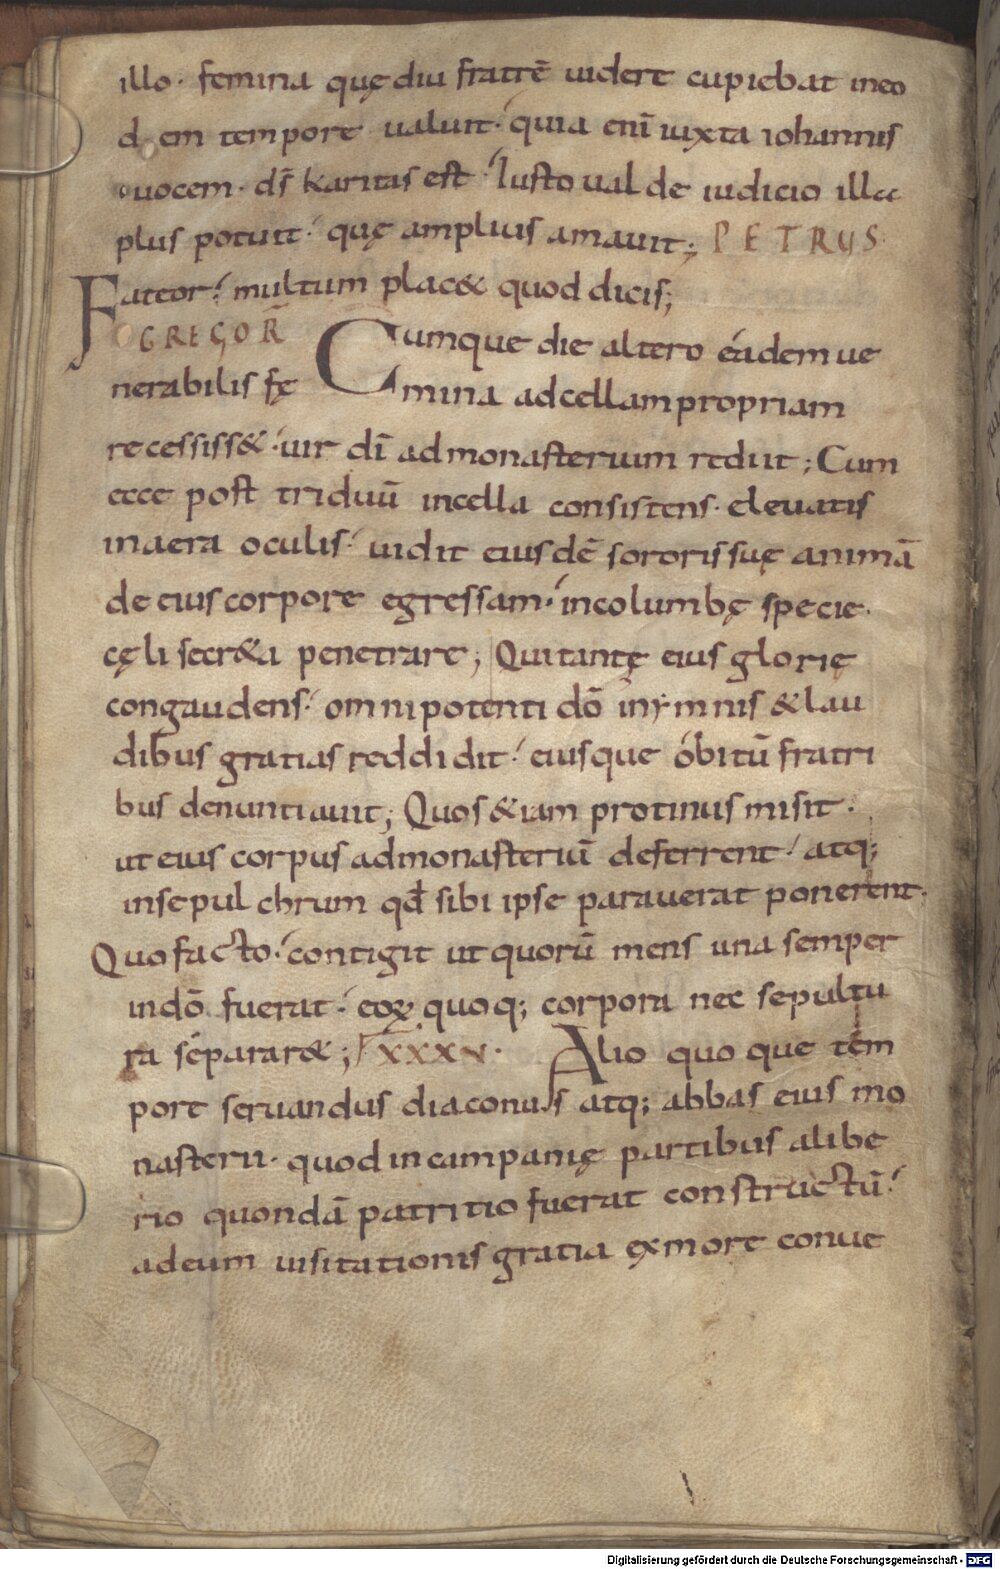 illo· femina quę diu fratrē uidere cupiebat in eo
dem tempore ualuit· quia enī iuxta iohannis
uocem· ds̄ karitas est· Iusto ualde iudicio illa
plus potuit· quę amplius amauit; PETRUS
Fateor· multum plac& quod dicis;
GREGOR̄ Cumque die altero eadem ue
nerabilis fę mina ad cellam propriam
recessiss&· uir dī ad monasterium rediit; Cum
ecce post triduū in cella consistens· eleuatis
in aera oculis· uidit eiusdē sororis suę animā
de eius corpore egressam· in columbę specie·
cęli secr&a penetrare; Qui tantę eius glorię
congaudens· omnipotenti dō in ymnis & lau
dibus gratias reddidit· eiusque obitū fratri
bus denuntiauit; Quos &iam protinus misit·
ut eius corpus ad monasteriū deferrent· atq;
in sepulchrum qđ sibi ipse parauerat ponerent·
Quo facto· contigit ut quorū mens una semper
in dō fuerat· eoꝝ quoq; corpora nec sepultu
ra separar&; XXXV· Alio quoque tem
pore seruandus diaconus atq; abbas eius mo
nasterii· quod in campanię partibus a libe
rio quondā patritio fuerat constructū·
ad eum uisitationis gratia ex more conue
Digitalisierung gefördert durch die Deutsche Forschungsgemeinschaft - DFG